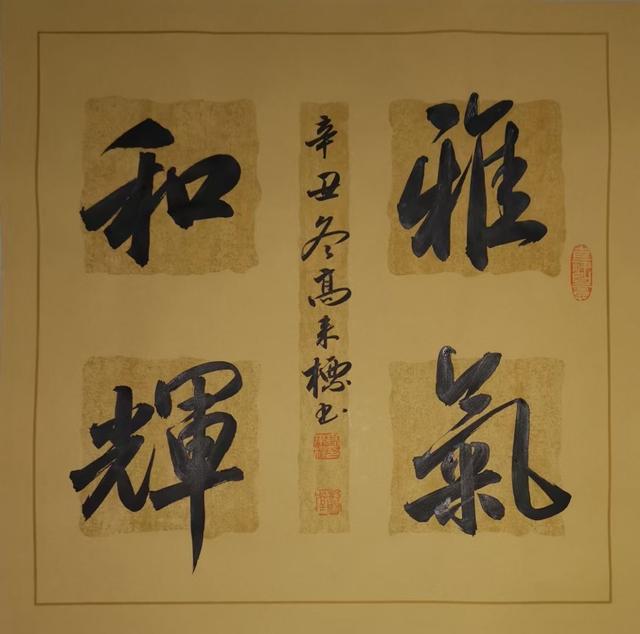 雅氣
辛丑冬高来標书
和輝